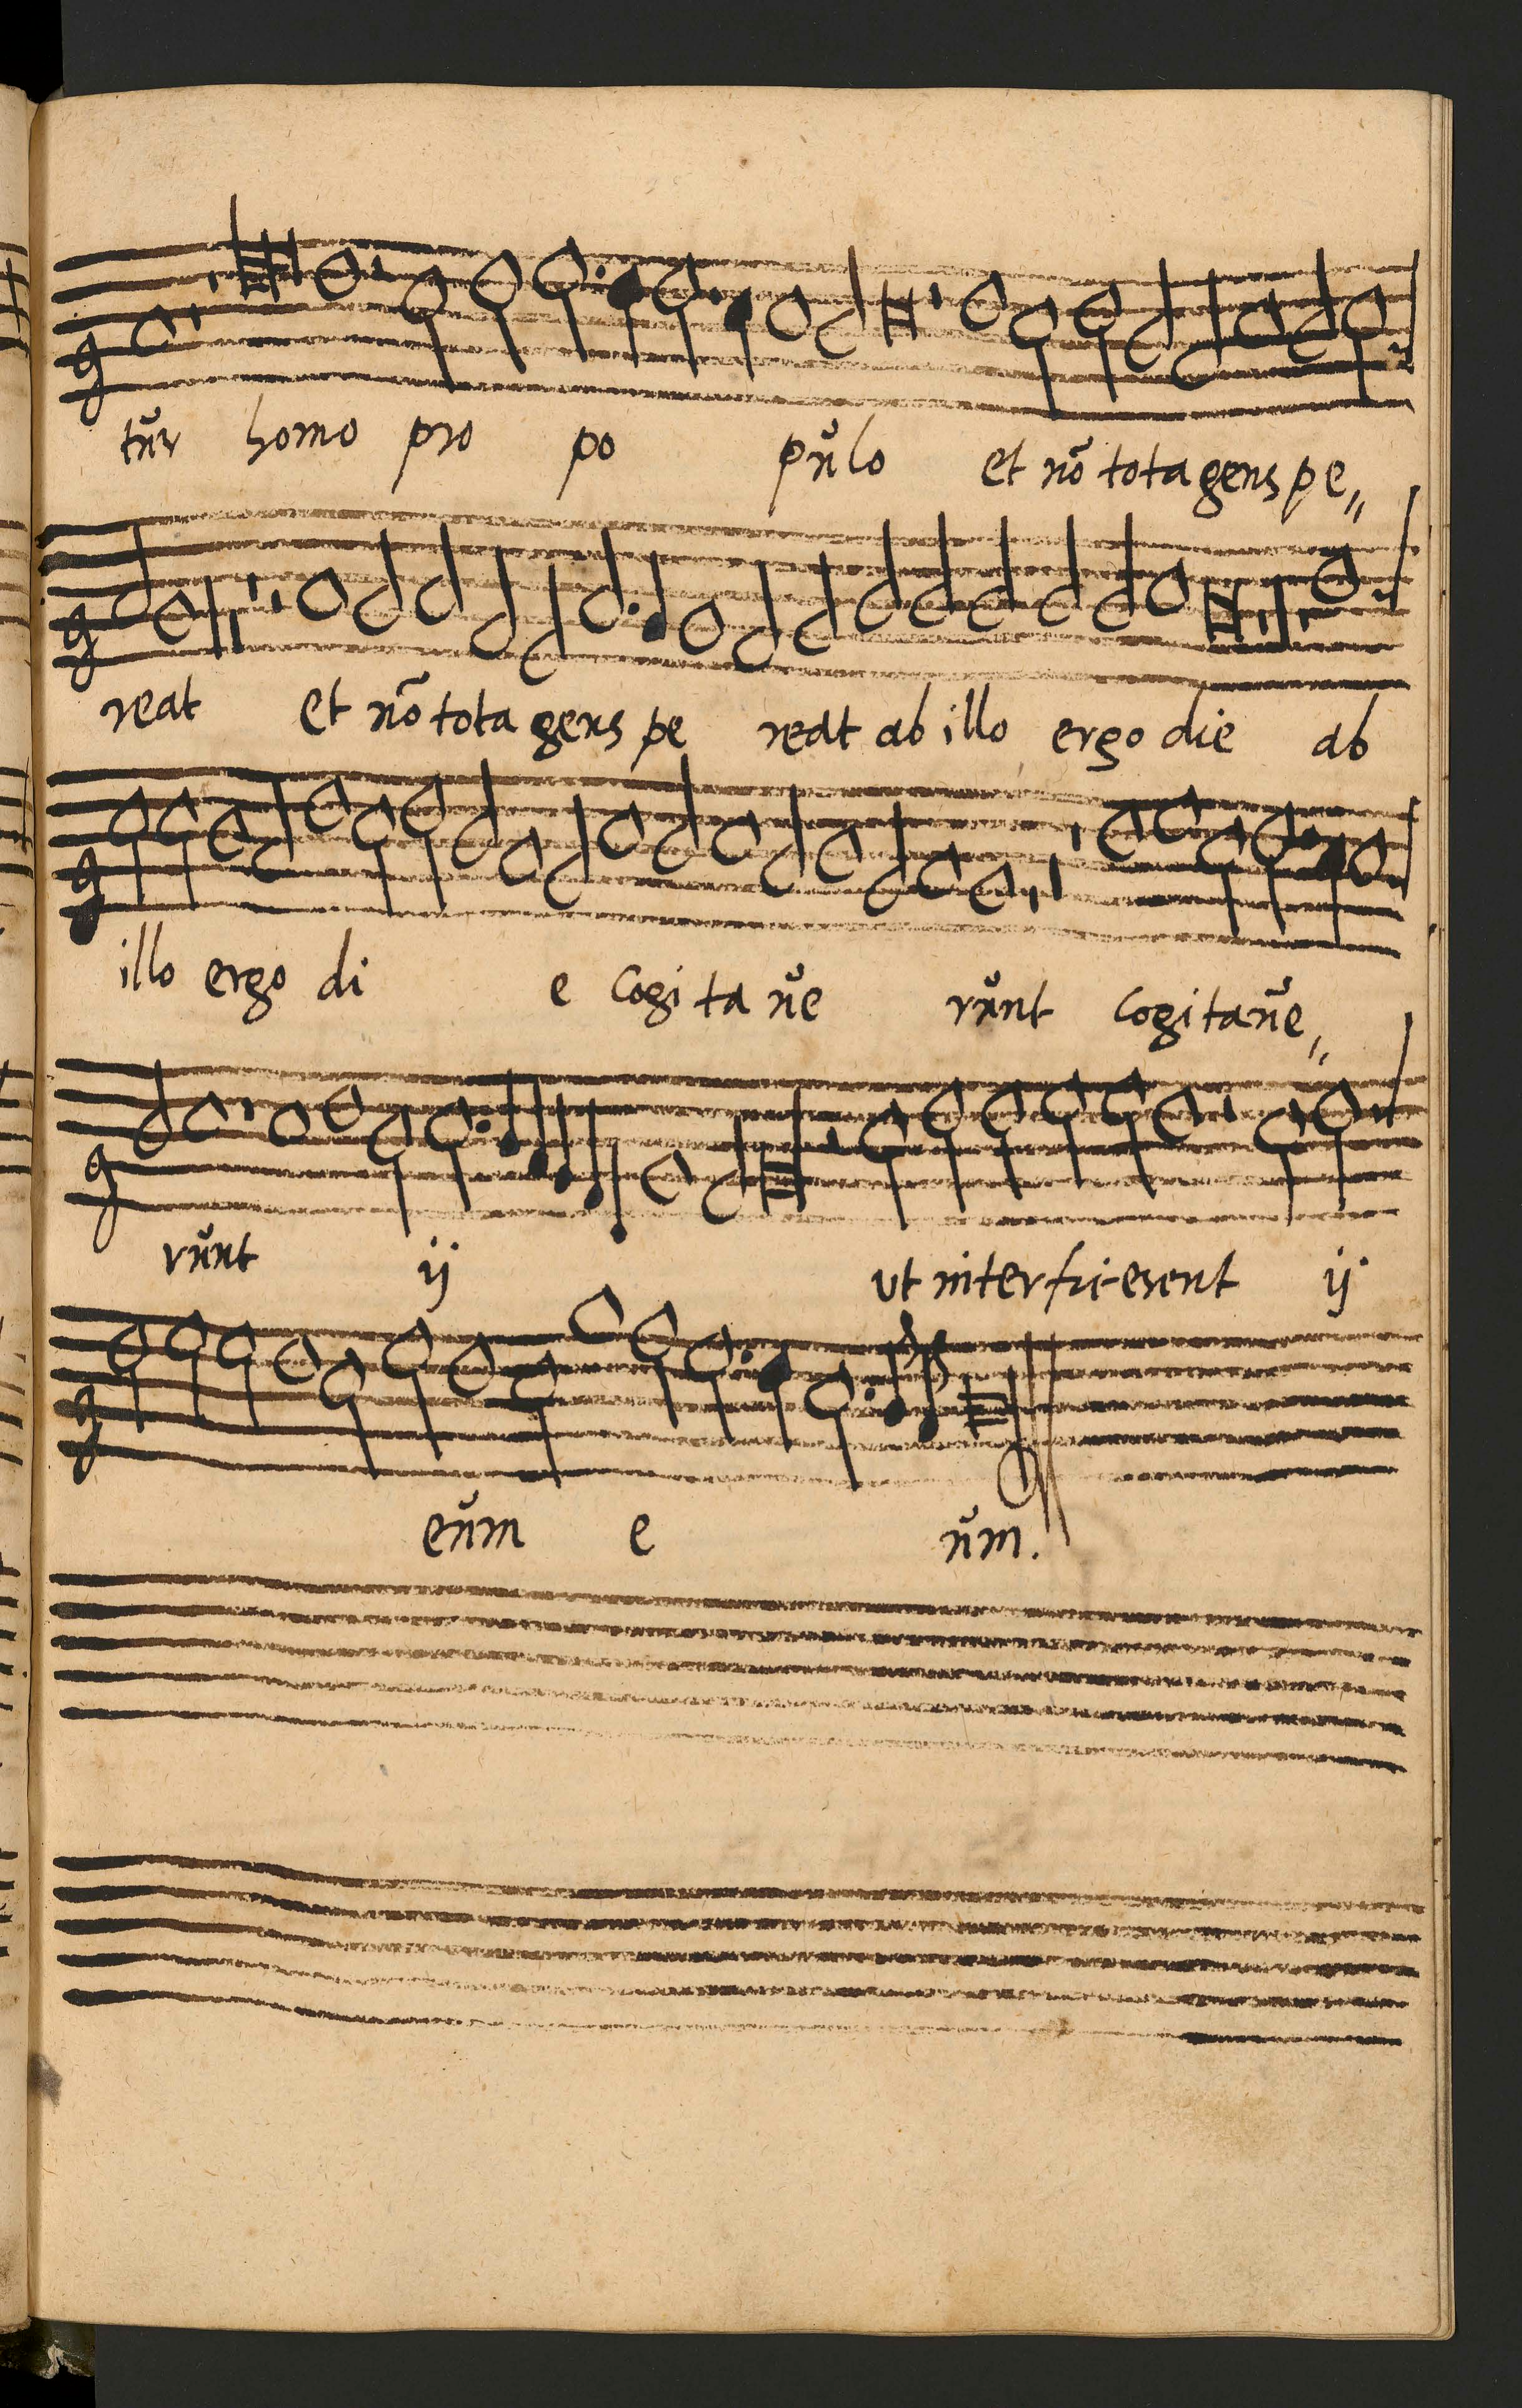 tur homo pro po pulo et nō tota gens pe„
reat et nō tota gens pe reat ab illo ergo die ab
illo ergo di e Cogi ta ue runt Cogitaue„
runt ij ut interficerent ij
eum e um.